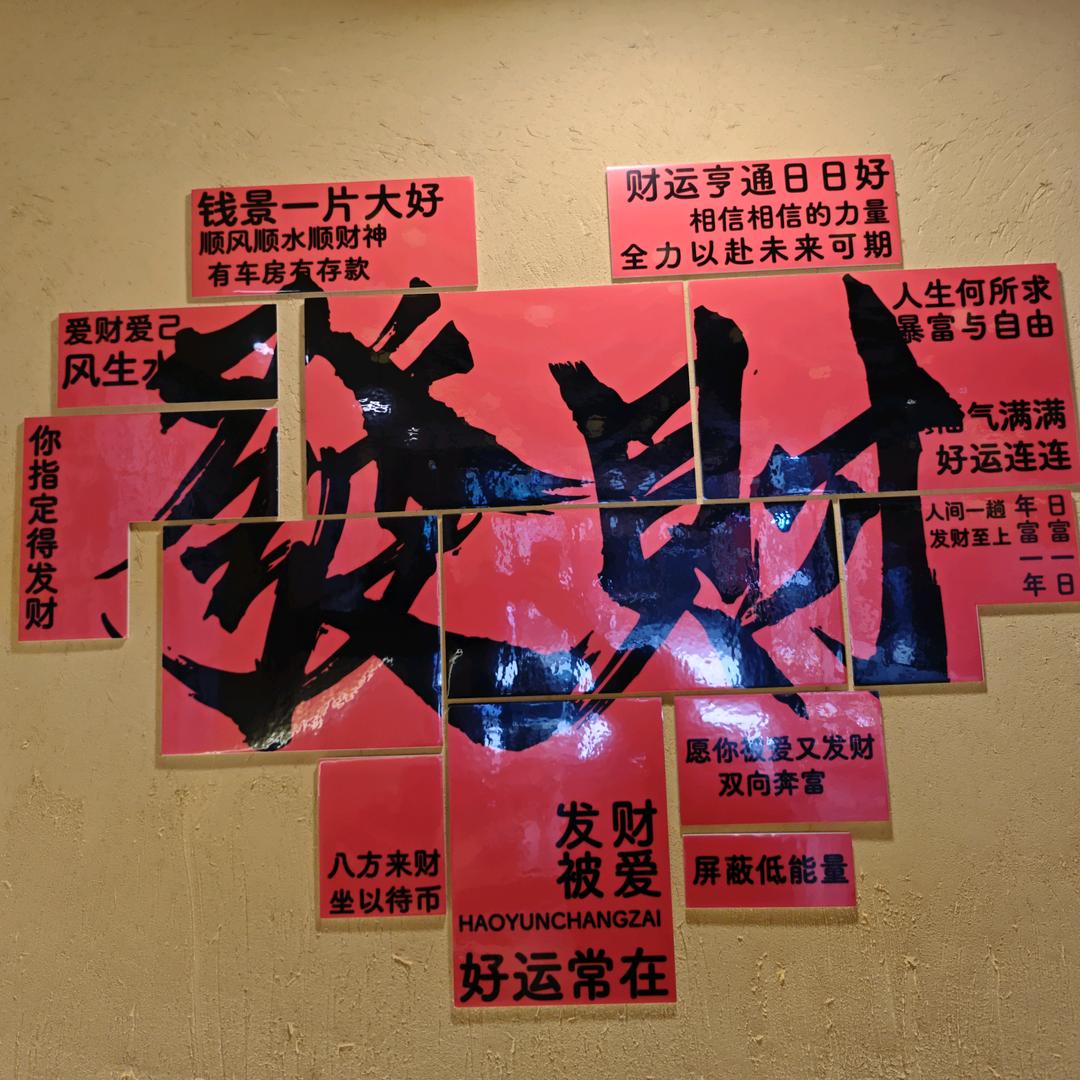 钱景一片大好
顺风顺水顺财神
有车房有存款
财运亨通日日好
相信相信的力量
全力以赴未来可期
爱财爱己
风生水
發财
人生何所求
暴富与自由
气满满
好运连连
你指定得发财
人间一趟
发财至上
年富一年
日富一日
愿你被爱又发财
双向奔富
屏蔽低能量
八方来财
坐以待币
发财
被爱
HAOYUNCHANGZAI
好运常在